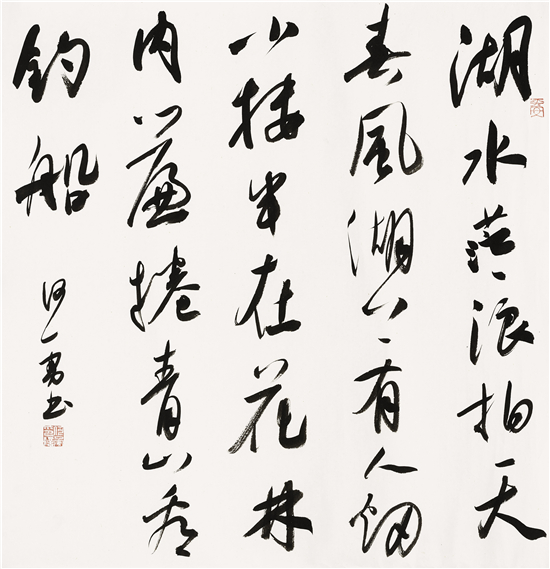 湖水茫茫浪拍天
春風湖上有人烟
小楼半在花林
内簾捲青山看
釣船
书